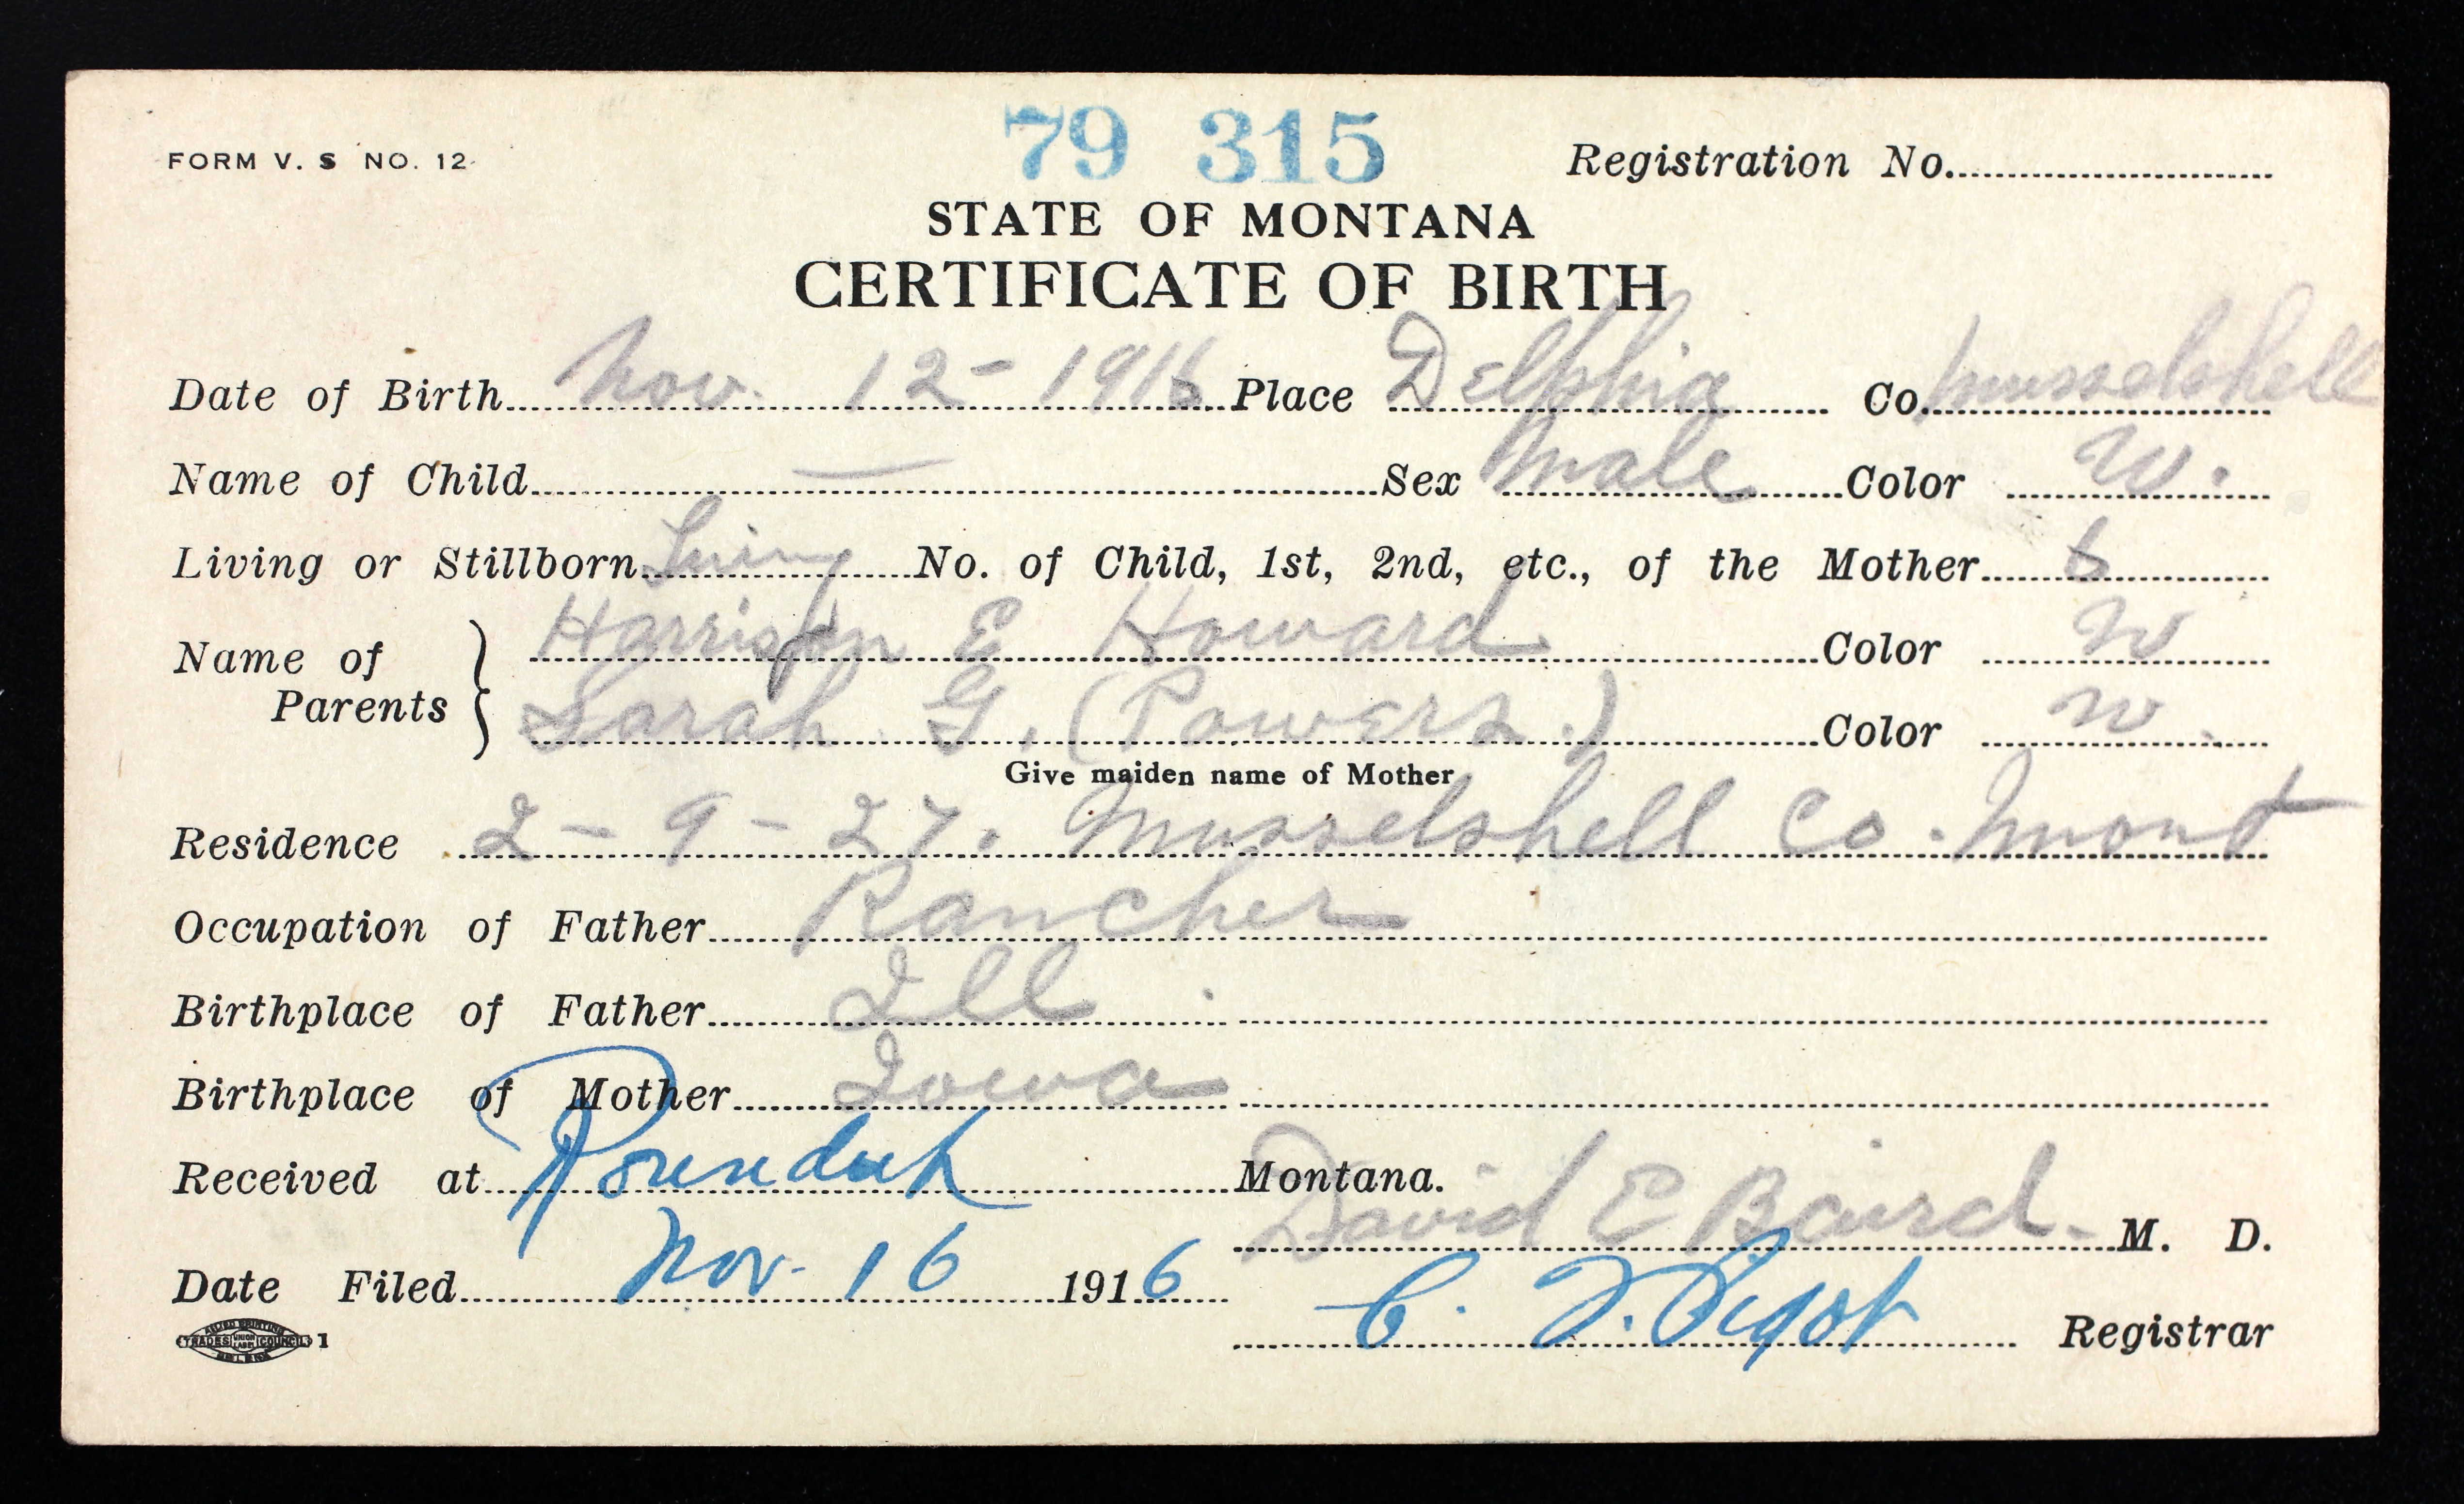 79 315
FORM V. S NO. 12
Registration No.
STATE OF MONTANA
CERTIFICATE OF BIRTH
Date of Birth Nov. 12 - 1916 Place Delphia Co. Musselshell
Name of Child — Sex Male Color W.
Living or Stillborn Living No. of Child, 1st, 2nd, etc., of the Mother 6
Name of Parents Harrison E Howard Color W
Sarah G. (Powers.) Color W.
Give maiden name of Mother
Residence 2 - 9 - 27. Musselshell Co. Mont
Occupation of Father Rancher
Birthplace of Father Ill
Birthplace of Mother Iowa
Received at Roundup Montana.
David E Baird. M. D.
Date Filed Nov. 16 1916
C. T. Pigot Registrar
ALLIED PRINTING
TRADES UNION LABEL COUNCIL 1